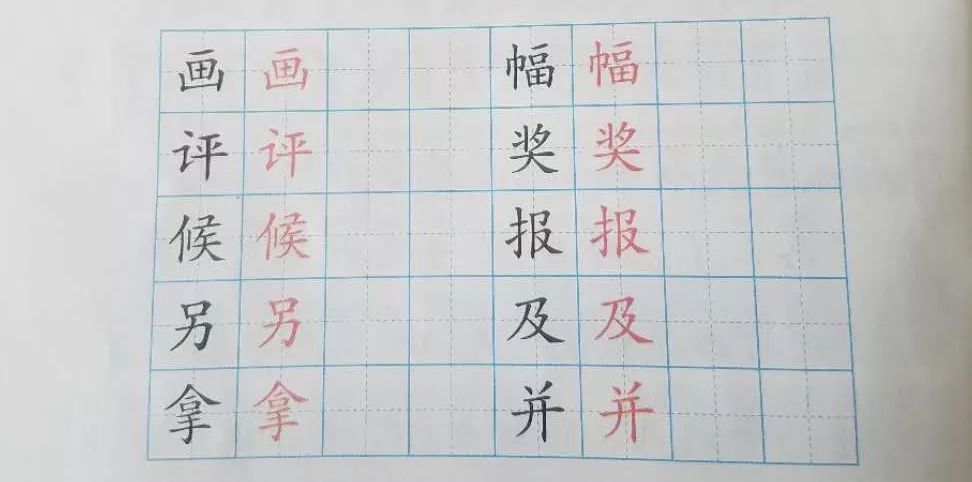 画 画 幅 幅
评 评 奖 奖
候 候 报 报
另 另 及 及
拿 拿 并 并